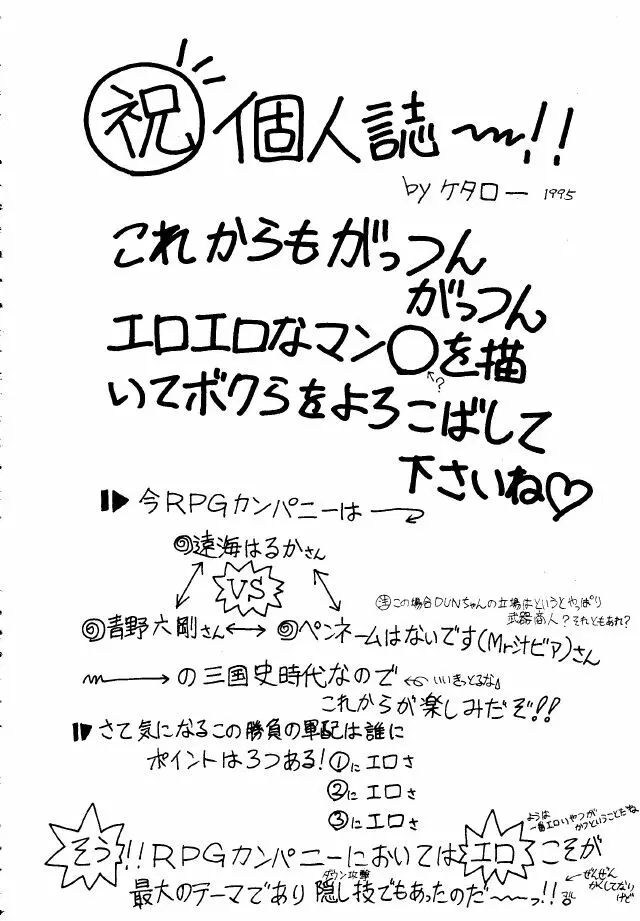 祝 個人誌〜!!
by ケタロー 1995
これからもがっつん
がっつん
エロエロなマン◯を描
?
いてボクらをよろこばして
下さいね♡
今RPGカンパニーは
◎遠海はるかさん
VS
注この場合DUNちゃんの立場はというとやっぱり
武器商人?それともあれ?
◎青野六剛さん↔◎ペンネームはないです(Mr汁ビア)さん
〜→の三国史時代なので
←いいきっとるな。
これからが楽しみだぞ!!
さて気になるこの勝負の軍配は誰に
ポイントは3つある!①にエロさ
②にエロさ
③にエロさ
ようは
一番エロいやつが
かつということだね
そう!!RPGカンパニーにおいてはエロこそが
ダウン攻撃
最大のテーマであり隠し技でもあったのだ〜っ!!
←ぜんぜん
かくしてない
けど